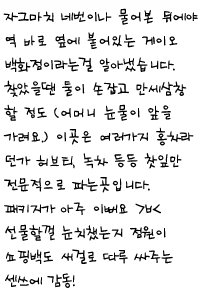 자그마치 네번이나 물어본 뒤에야
역 바로 옆에 붙어있는 게이오
백화점이라는걸 알아냈습니다.
찾았을땐 둘이 손잡고 만세삼창
할 정도 (어머니 눈물이 앞을
가려요.) 이곳은 여러가지 홍차라
던가 허브티, 녹차 등등 찻잎만
전문적으로 파는곳입니다.
패키지가 아주 이뻐요 >ㅂ<
선물할껄 눈치챘는지 점원이
쇼핑백도 새걸로 따루 싸주는
센쓰에 감동!